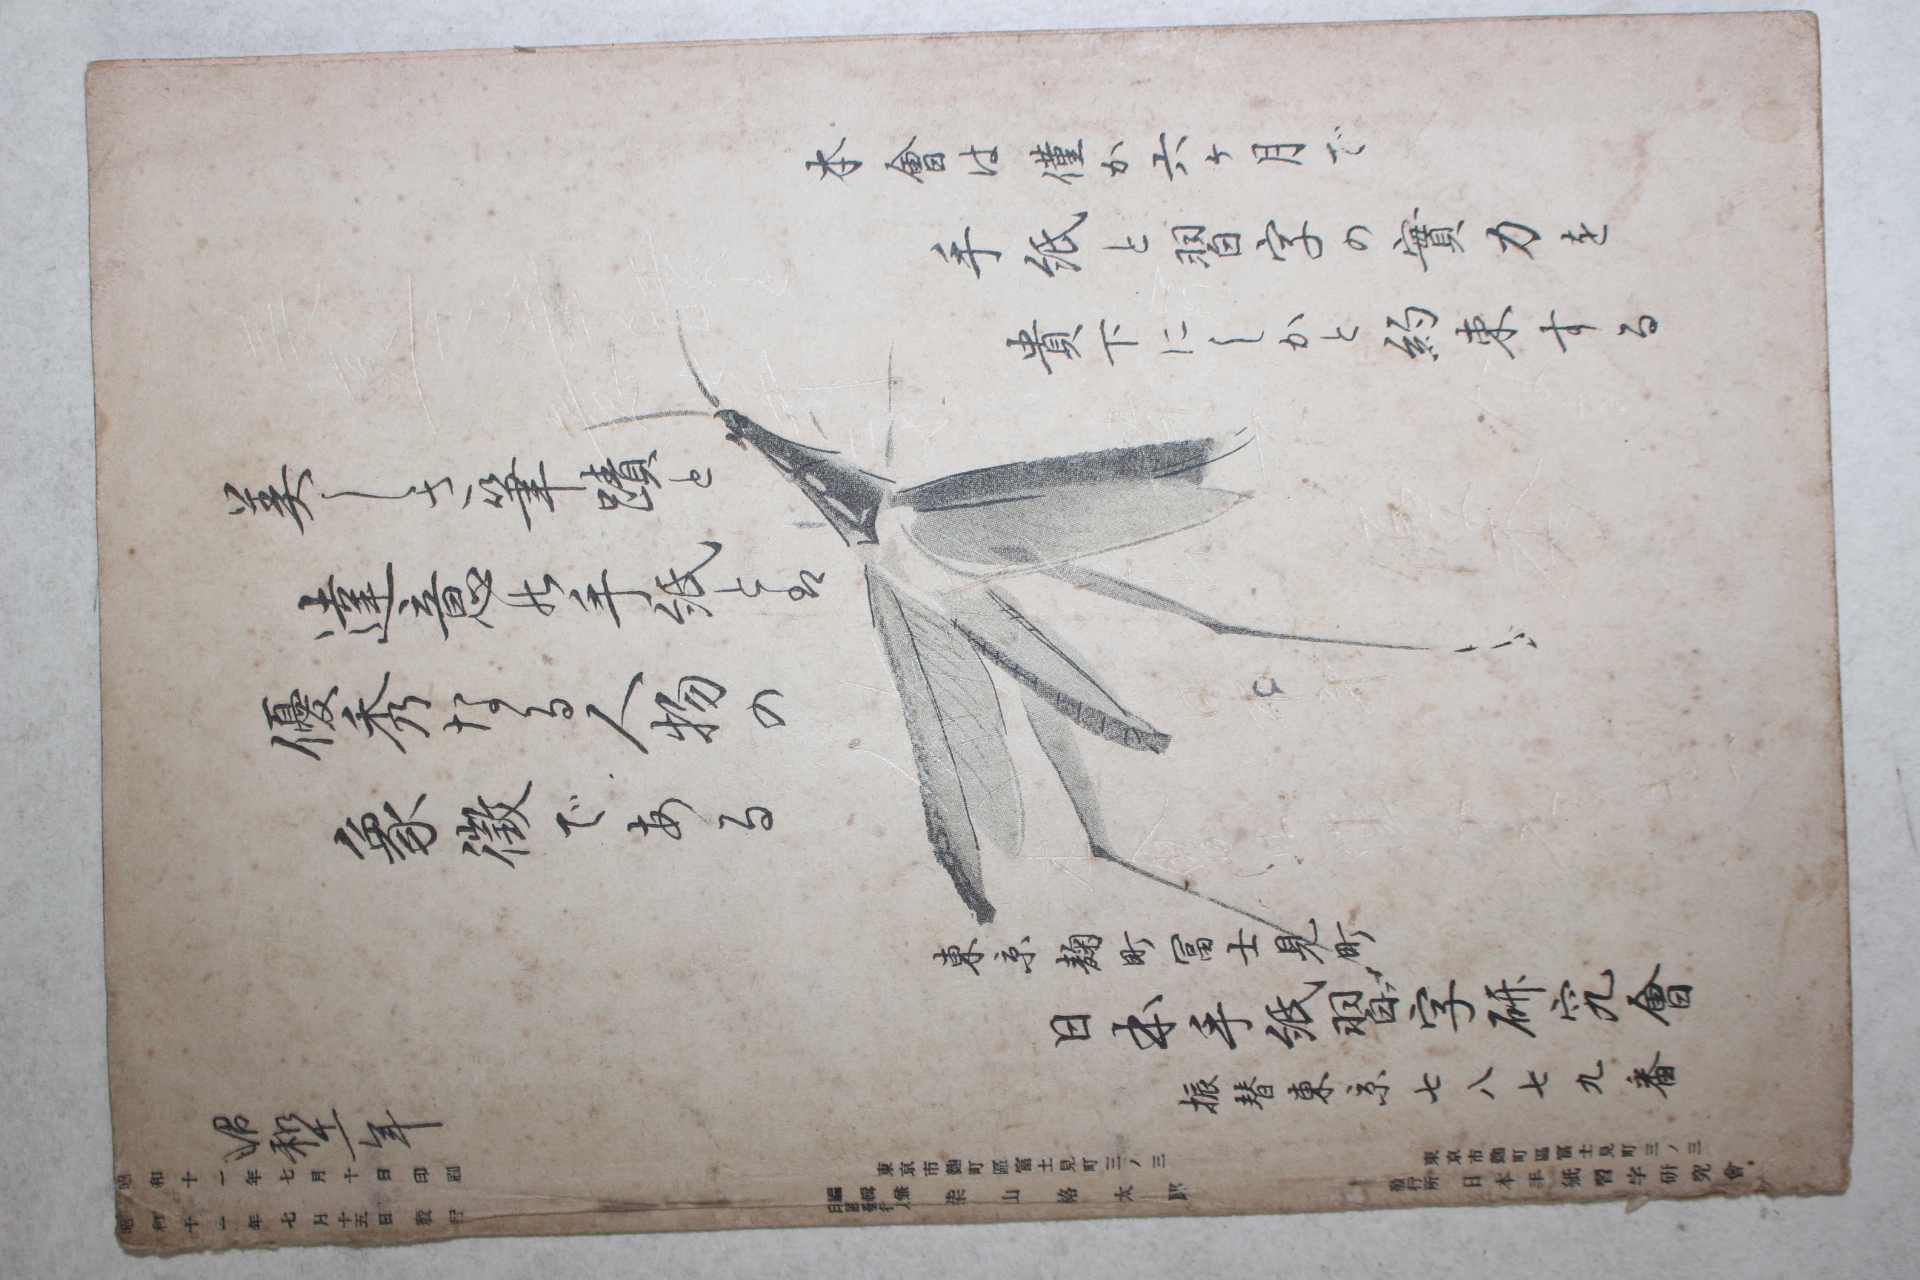 本會は僅か六ヶ月で
手紙と習字の實力を
貴下にしかと約束する
美しき筆蹟と
達意の手紙とは
優秀なる人物の
象徴である
東京麹町富士見町
日本手紙習字研究會
振替東京七八七九番
昭和十一年
昭和十一年七月十日印刷
昭和十一年七月十五日發行
東京市麹町區富士見町三ノ三
山
太郎
東京市麹町區富士見町三ノ三
發行所 日本手紙習字研究會